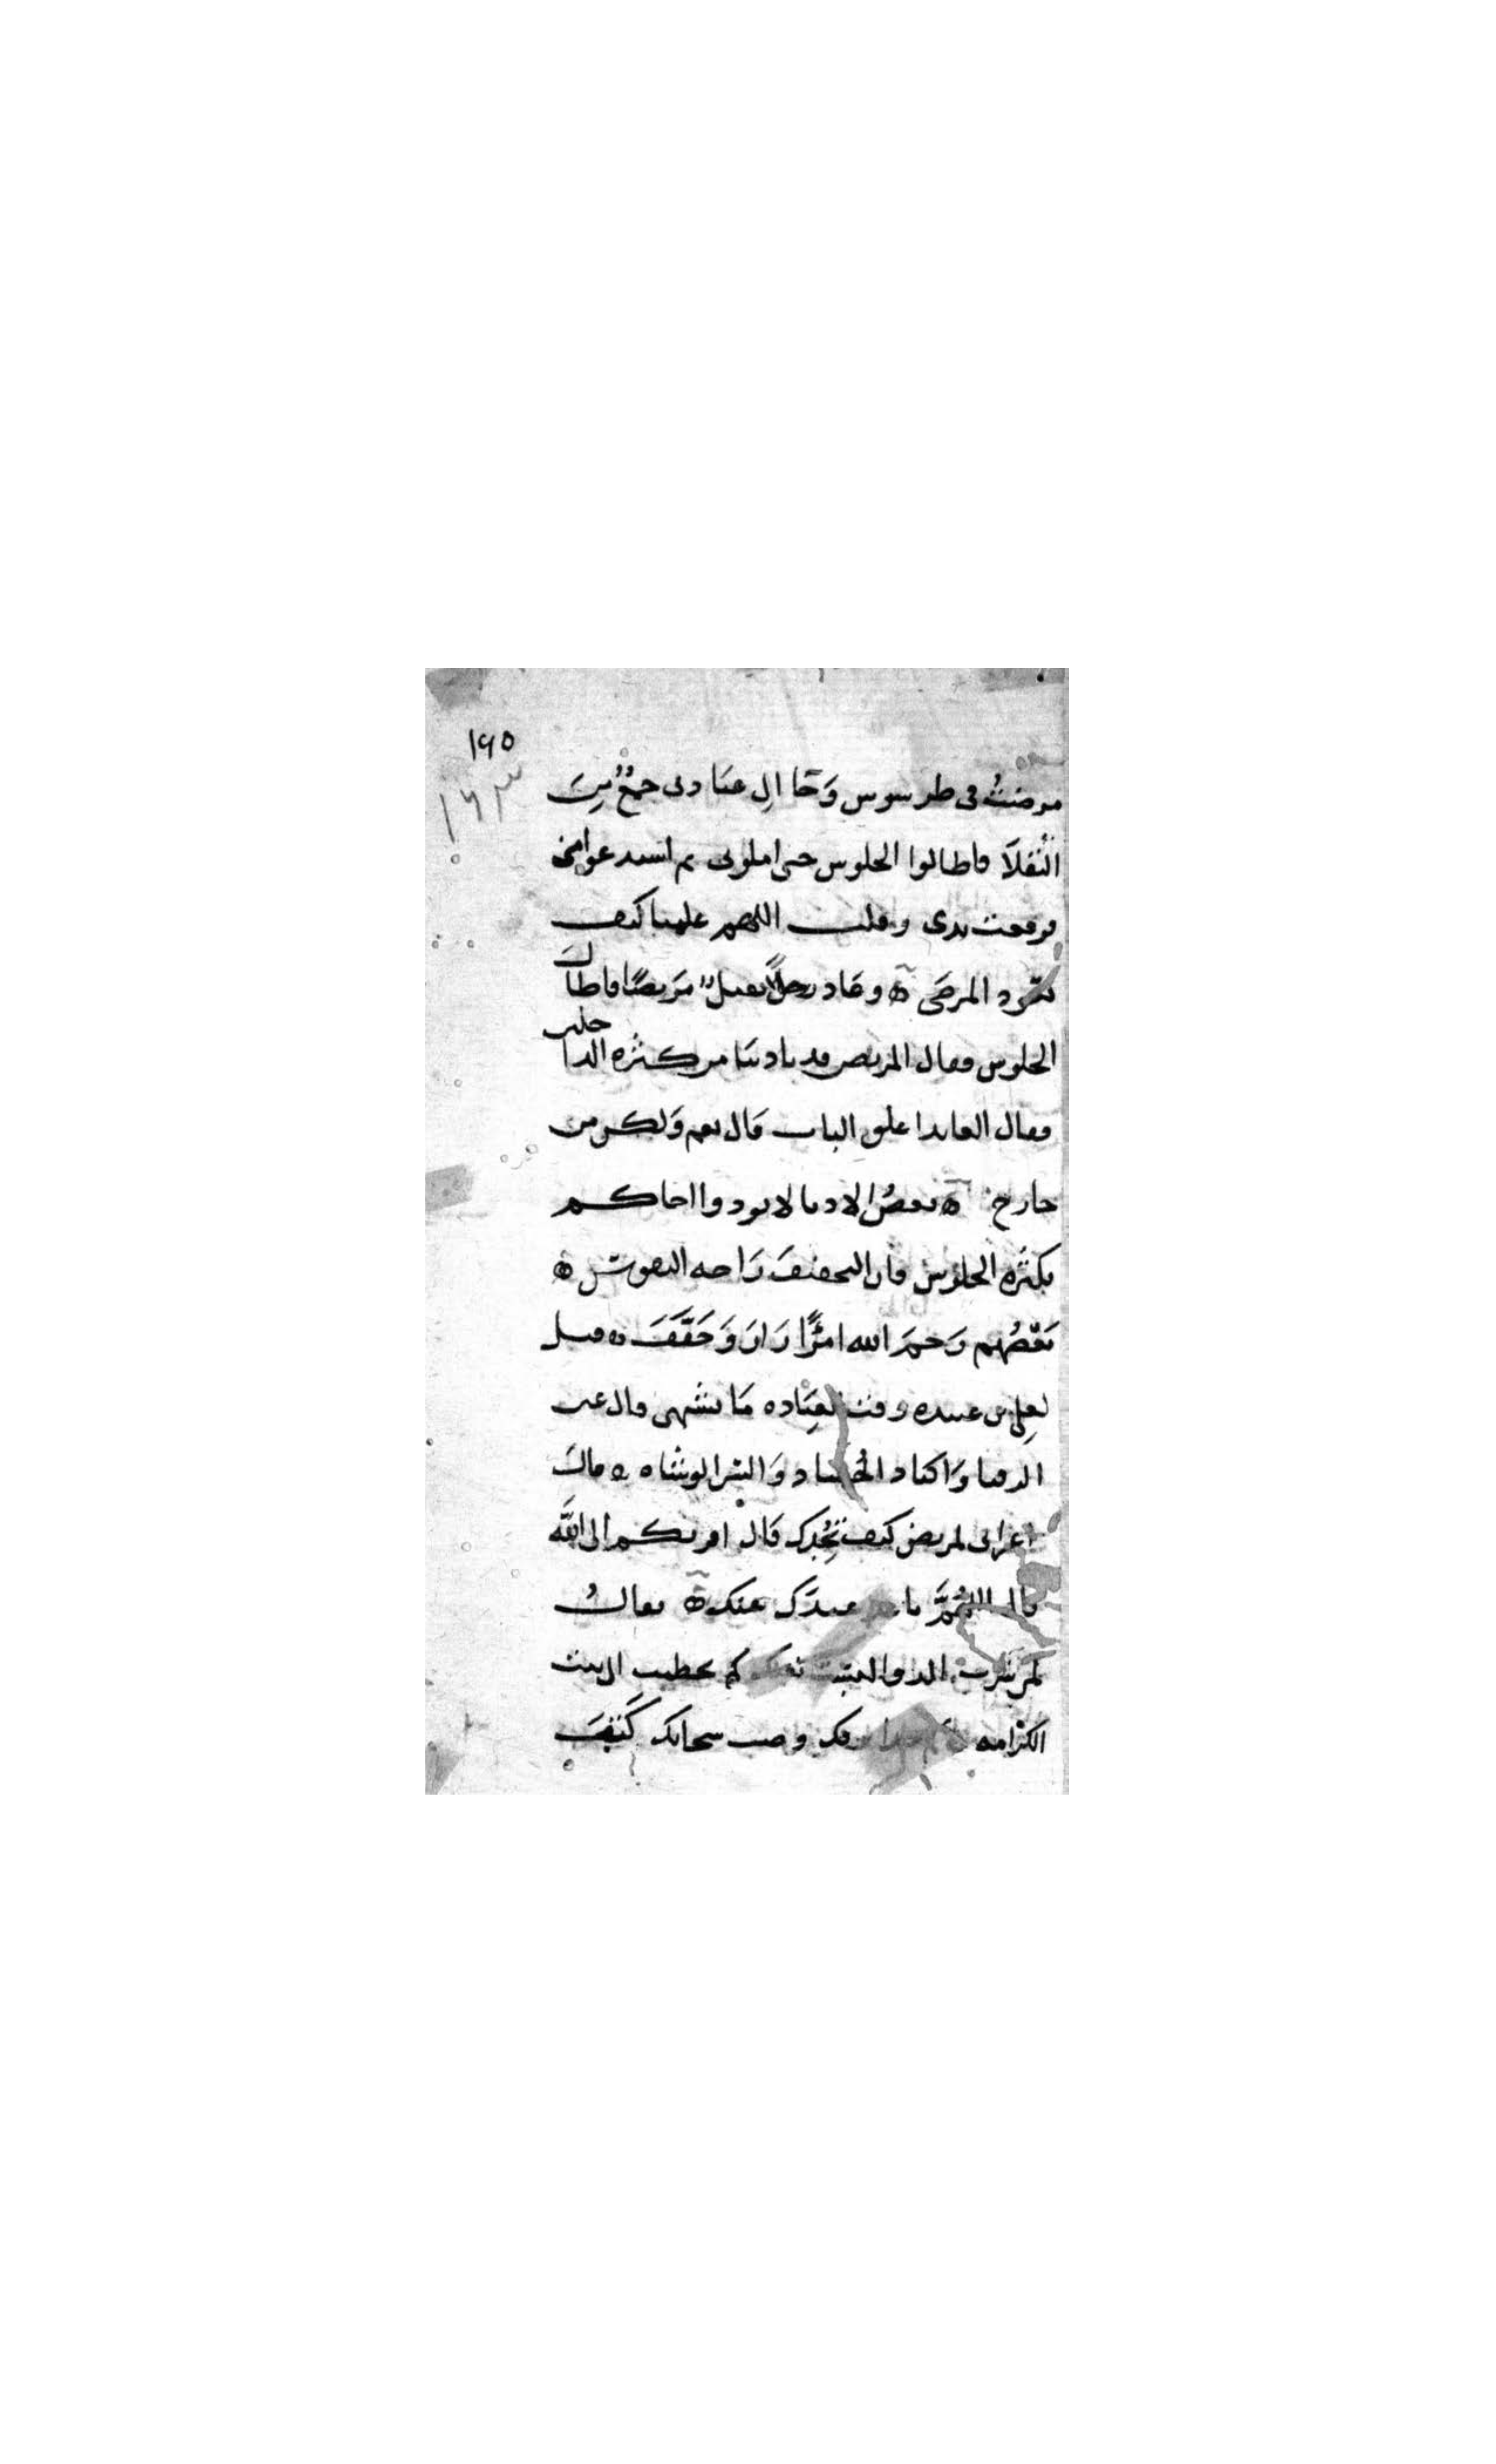 ١٦٥
١٦٣
مرضتُ فى طرسوس وَحَا الِ عنادنى جمعٌ مِنَ
الثقلاَ فاطالوا الجلوس حتى املونى ثم استدعوا منى
فرفعت يدى وقلت اللهم علمنا كيف
نعُود المرضَى ۞ وعَاد رجلٌ ثقيلٌ مَريضًا فاطالَ
الجلوس فقال المريض قد تاذينا من كثره الداخلين
فقال العايد اغلق الباب قَال نعم وَلكن من
خارج ۞ بعضُ الادبا لا توذوا اخاكم
بكثره الجلوس فان التخفيفَ رَاحه النفوس ۞
بَعْضُهم رَحمَ الله امرًا زَارَ وَخَفَّفَ ۞ قيل
لعلى بن عبيده وقت العِيَاده مَا تشتهى قال عين
الرقبا وَاكباد الحُساد وَالسن الوشاه ۞ قالَ
اعرابى لمريض كيف تَجدك قَال اقربكم الى اللهَ
قال اللهُمَّ باعد عبدَك عنك ۞ يقالُ
لمن شرب الدوا كيف
الكرامه وصب سحابك كَيفَ